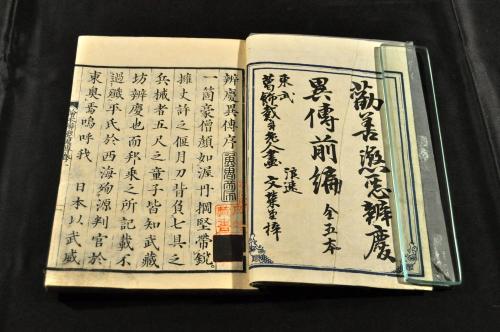 勸善懲惡辨慶
異傳前編 全五本
東武
葛飾戴斗
浪速 文榮堂梓
辨慶異傳序
一箇豪僧顔如渥丹擐堅帶銳
擁丈許之偃月刀背負七具之
兵械者五尺之童子皆知武藏
坊辨慶也而邦來之所記載不
過殲平氏於西海殉源判官於
東奥焉嗚呼我 日本以武威